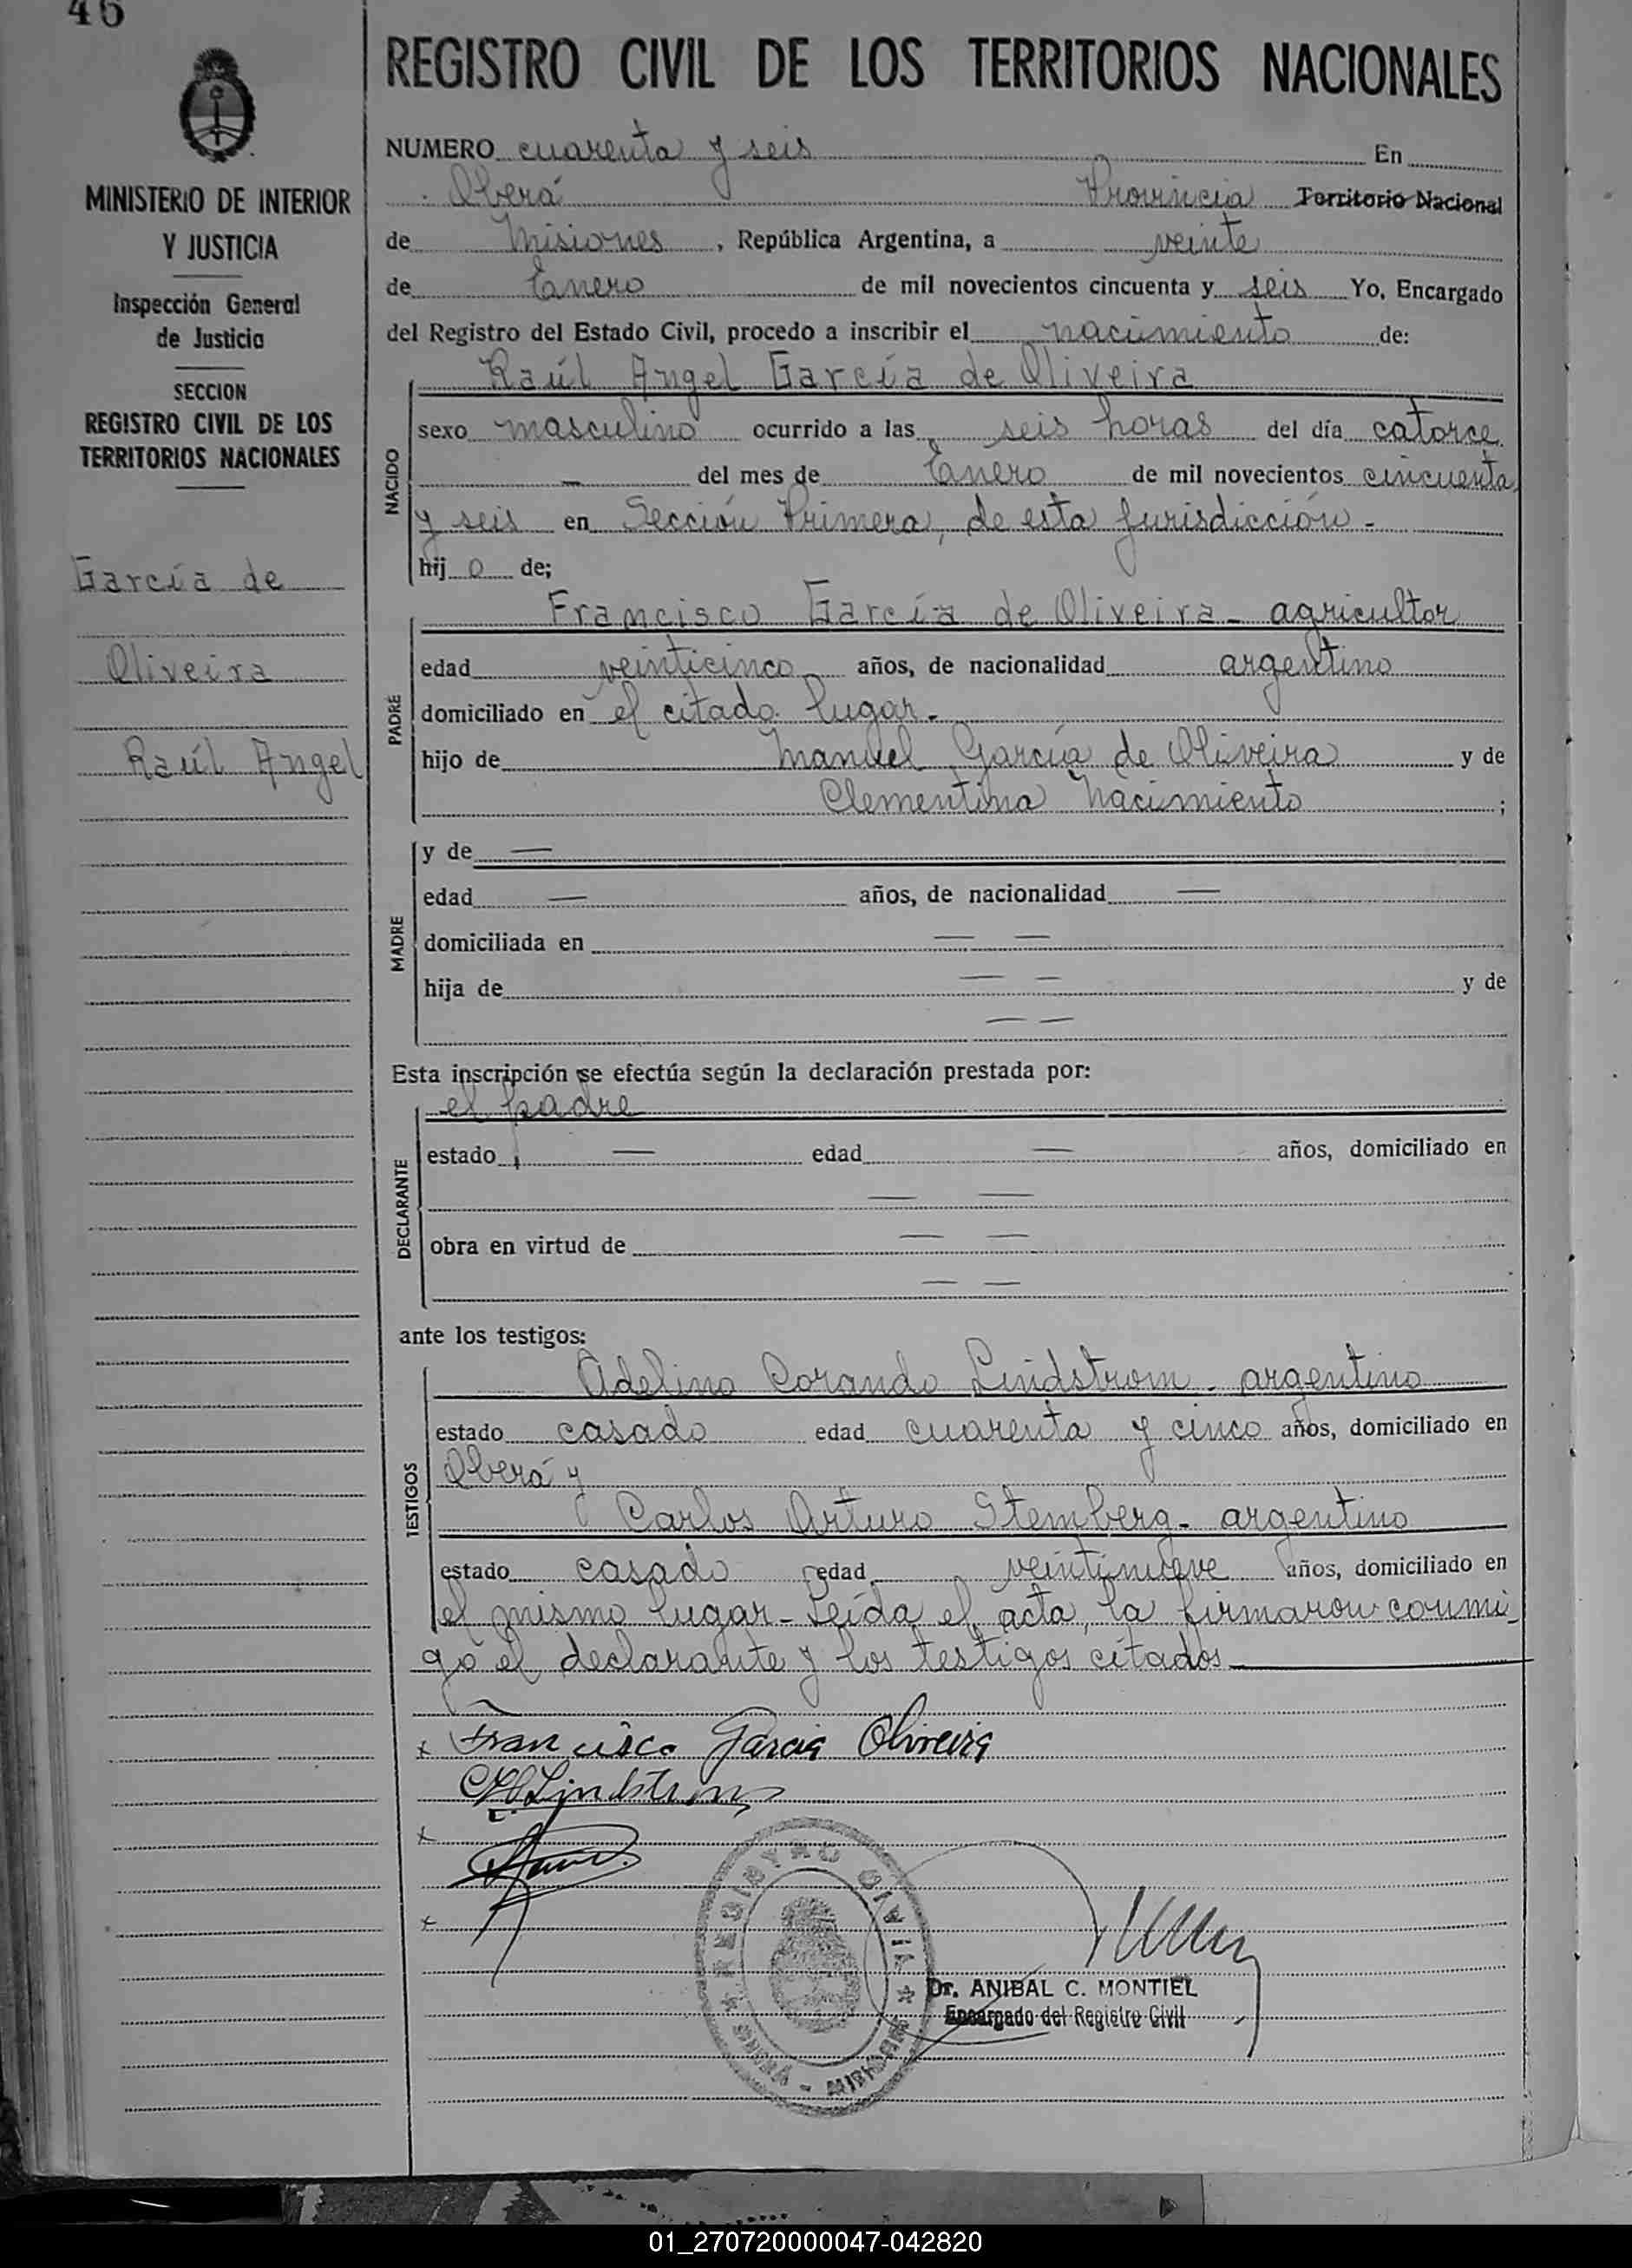 46
REGISTRO CIVIL DE LOS TERRITORIOS NACIONALES
MINISTERIO DE INTERIOR
Y JUSTICIA
Inspección General
de Justicia
SECCION
REGISTRO CIVIL DE LOS
TERRITORIOS NACIONALES
García de
Oliveira
Raúl Angel
NUMERO cuarenta y seis En
Oberá Provincia Territorio Nacional
de Misiones, República Argentina, a veinte
de Enero de mil novecientos cincuenta y seis Yo, Encargado
del Registro del Estado Civil, procedo a inscribir el nacimiento de:
Raúl Angel García de Oliveira
NACIDO
sexo masculino ocurrido a las seis horas del día catorce
— del mes de Enero de mil novecientos cincuenta
y seis en Sección Primera, de esta Jurisdicción -
hij o de;
Francisco García de Oliveira - agricultor
PADRE
edad veinticinco años, de nacionalidad argentino
domiciliado en el citado lugar -
hijo de Manuel García de Oliveira y de
Clementina Nacimiento ;
MADRE
y de —
edad — años, de nacionalidad —
domiciliada en — —
hija de — — y de
— —
Esta inscripción se efectúa según la declaración prestada por:
el padre
DECLARANTE
estado — edad — años, domiciliado en
— —
obra en virtud de — —
— —
ante los testigos:
TESTIGOS
Adelino Corando Lindstrom - argentino
estado casado edad cuarenta y cinco años, domiciliado en
Oberá y
Carlos Arturo Stemberg - argentino
estado casado edad veintinueve años, domiciliado en
el mismo lugar - Leída el acta, la firmaron conmi-
go el declarante y los testigos citados
x Francisco Garcia Oliveira
Lindstrom
x
x
REGISTRO CIVIL
OBERÁ - MISIONES
Dr. ANIBAL C. MONTIEL
Encargado del Registro Civil
01_270720000047-042820